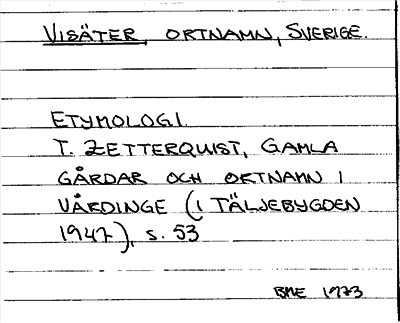 VISÄTER, ORTNAMN, SVERIGE.
ETYMOLOGI.
T. ZETTERQUIST, GAMLA
GÅRDAR OCH ORTNAMN I
VÅRDINGE (I TÄLJEBYGDEN
1947), s. 53
BME 1973